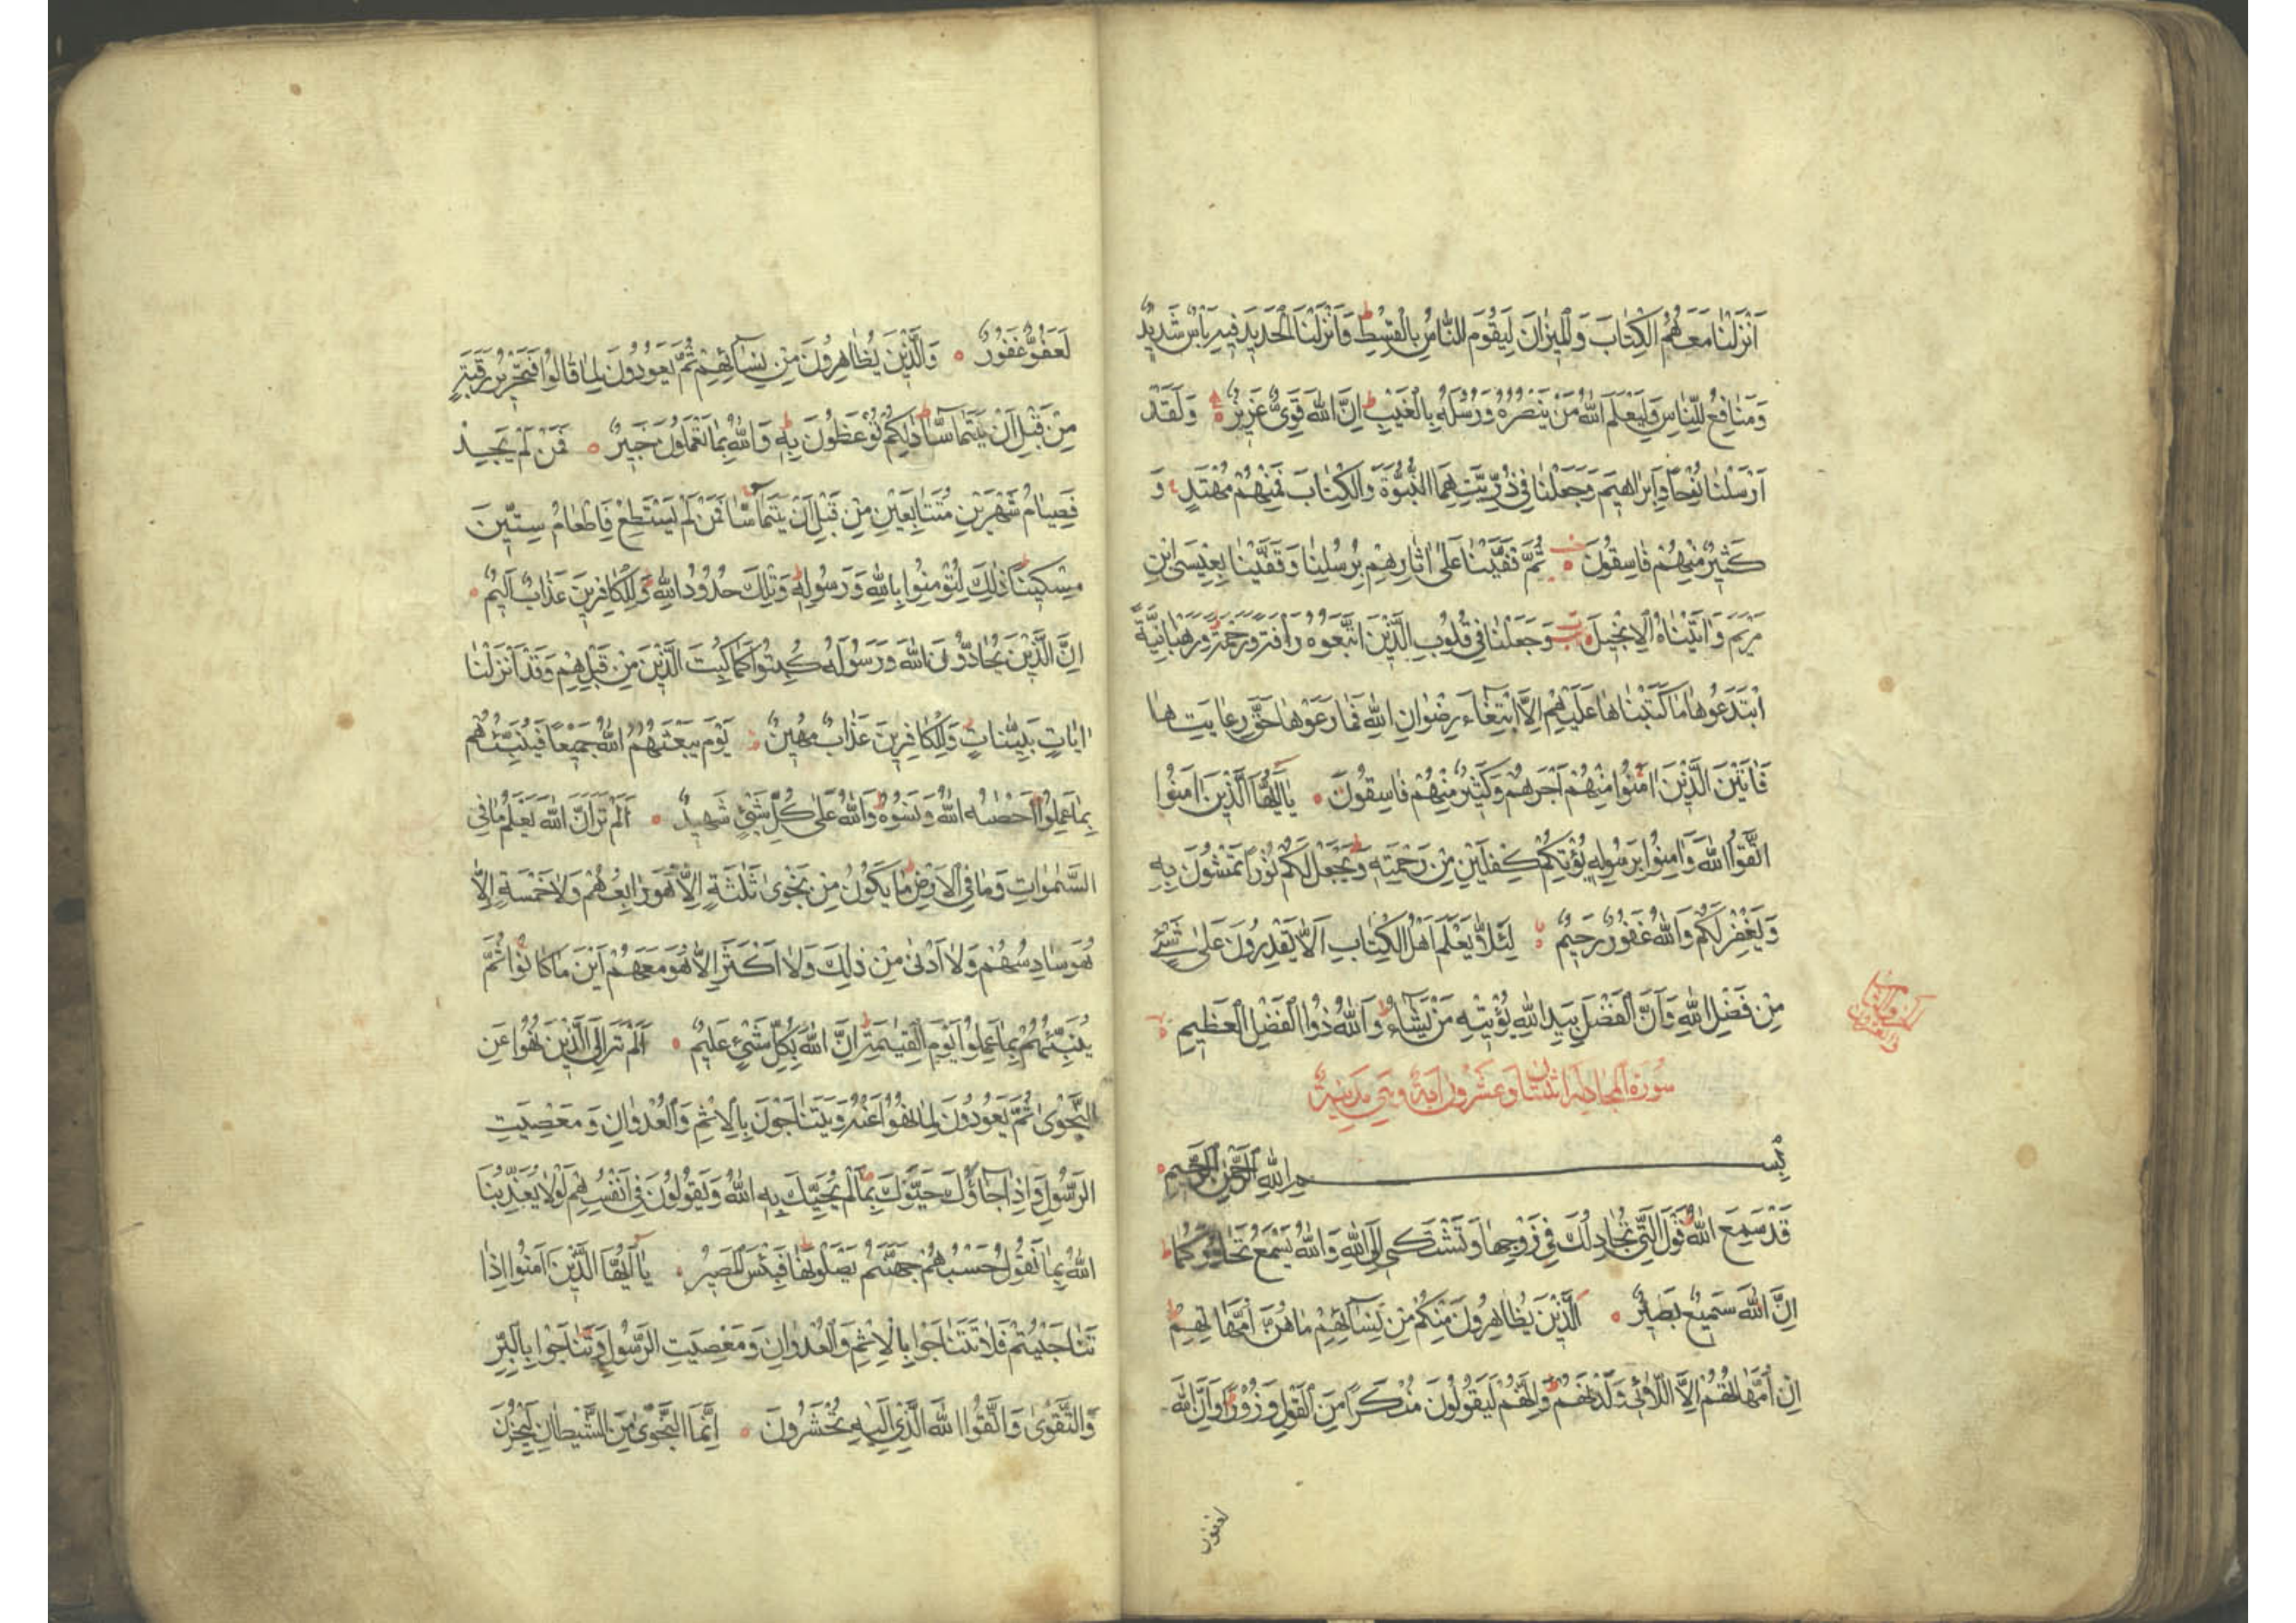 اَنْزَلْنَا مَعَهُمُ الْكِتَابَ وَالْمِيزَانَ لِيَقُومَ النَّاسُ بِالْقِسْطِ وَاَنْزَلْنَا الْحَدِيدَ فِيهِ بَأْسٌ شَدِيدٌ
وَمَنَافِعُ لِلنَّاسِ وَلِيَعْلَمَ اللّٰهُ مَنْ يَنْصُرُهُ وَرُسُلَهُ بِالْغَيْبِ اِنَّ اللّٰهَ قَوِيٌّ عَزِيزٌ وَلَقَدْ
اَرْسَلْنَا نُوحًا وَاِبْرٰاهِيمَ وَجَعَلْنَا فِي ذُرِّيَّتِهِمَا النُّبُوَّةَ وَالْكِتَابَ فَمِنْهُمْ مُهْتَدٍ وَ
كَثِيرٌ مِنْهُمْ فَاسِقُونَ ثُمَّ قَفَّيْنَا عَلٰى اٰثَارِهِمْ بِرُسُلِنَا وَقَفَّيْنَا بِعِيسَى ابْنِ
مَرْيَمَ وَاٰتَيْنَاهُ الْاِنْجِيلَ وَجَعَلْنَا فِي قُلُوبِ الَّذِينَ اتَّبَعُوهُ رَأْفَةً وَرَحْمَةً وَرَهْبَانِيَّةً
ابْتَدَعُوهَا مَا كَتَبْنَاهَا عَلَيْهِمْ اِلَّا ابْتِغَاءَ رِضْوَانِ اللّٰهِ فَمَا رَعَوْهَا حَقَّ رِعَايَتِهَا
فَاٰتَيْنَ الَّذِينَ اٰمَنُوا مِنْهُمْ اَجْرَهُمْ وَكَثِيرٌ مِنْهُمْ فَاسِقُونَ يَا اَيُّهَا الَّذِينَ اٰمَنُوا
اتَّقُوا اللّٰهَ وَاٰمِنُوا بِرَسُولِهِ يُؤْتِكُمْ كِفْلَيْنِ مِنْ رَحْمَتِهِ وَيَجْعَلْ لَكُمْ نُورًا تَمْشُونَ بِهِ
وَيَغْفِرْ لَكُمْ وَاللّٰهُ غَفُورٌ رَحِيمٌ لِئَلَّا يَعْلَمَ اَهْلُ الْكِتَابِ اَلَّا يَقْدِرُونَ عَلٰى شَيْءٍ
مِنْ فَضْلِ اللّٰهِ وَاَنَّ الْفَضْلَ بِيَدِ اللّٰهِ يُؤْتِيهِ مَنْ يَشَاءُ وَاللّٰهُ ذُوا الْفَضْلِ الْعَظِيمِ
سُورَةُ الْمُجَادِلَةِ اثْنَتَانِ وَعَشْرُونَ اٰيَةً وَهِيَ مَدَنِيَّةٌ
بِسْمِ اللّٰهِ الرَّحْمٰنِ الرَّحِيمِ
قَدْ سَمِعَ اللّٰهُ قَوْلَ الَّتِي تُجَادِلُكَ فِي زَوْجِهَا وَتَشْتَكِي اِلَى اللّٰهِ وَاللّٰهُ يَسْمَعُ تَحَاوُرَكُمَا
اِنَّ اللّٰهَ سَمِيعٌ بَصِيرٌ اَلَّذِينَ يُظَاهِرُونَ مِنْكُمْ مِنْ نِسَائِهِمْ مَا هُنَّ اُمَّهَاتِهِمْ
اِنْ اُمَّهَاتُهُمْ اِلَّا اللّٰائِي وَلَدْنَهُمْ وَاِنَّهُمْ لَيَقُولُونَ مُنْكَرًا مِنَ الْقَوْلِ وَزُورًا وَاِنَّ اللّٰهَ
لعفو
لَعَفُوٌّ غَفُورٌ وَالَّذِينَ يُظَاهِرُونَ مِنْ نِسَائِهِمْ ثُمَّ يَعُودُونَ لِمَا قَالُوا فَتَحْرِيرُ رَقَبَةٍ
مِنْ قَبْلِ اَنْ يَتَمَاسَّا ذٰلِكُمْ تُوعَظُونَ بِهِ وَاللّٰهُ بِمَا تَعْمَلُونَ خَبِيرٌ فَمَنْ لَمْ يَجِدْ
فَصِيَامُ شَهْرَيْنِ مُتَتَابِعَيْنِ مِنْ قَبْلِ اَنْ يَتَمَاسَّا فَمَنْ لَمْ يَسْتَطِعْ فَاِطْعَامُ سِتِّينَ
مِسْكِينًا ذٰلِكَ لِتُؤْمِنُوا بِاللّٰهِ وَرَسُولِهِ وَتِلْكَ حُدُودُ اللّٰهِ وَلِلْكَافِرِينَ عَذَابٌ اَلِيمٌ
اِنَّ الَّذِينَ يُحَادُّونَ اللّٰهَ وَرَسُولَهُ كُبِتُوا كَمَا كُبِتَ الَّذِينَ مِنْ قَبْلِهِمْ وَقَدْ اَنْزَلْنَا
اٰيَاتٍ بَيِّنَاتٍ وَلِلْكَافِرِينَ عَذَابٌ مُهِينٌ يَوْمَ يَبْعَثُهُمُ اللّٰهُ جَمِيعًا فَيُنَبِّئُهُمْ
بِمَا عَمِلُوا اَحْصٰيهُ اللّٰهُ وَنَسُوهُ وَاللّٰهُ عَلٰى كُلِّ شَيْءٍ شَهِيدٌ اَلَمْ تَرَ اَنَّ اللّٰهَ يَعْلَمُ مَا فِي
السَّمٰوَاتِ وَمَا فِي الْاَرْضِ مَا يَكُونُ مِنْ نَجْوٰى ثَلٰثَةٍ اِلَّا هُوَ رَابِعُهُمْ وَلَا خَمْسَةٍ اِلَّا
هُوَ سَادِسُهُمْ وَلَا اَدْنٰى مِنْ ذٰلِكَ وَلَا اَكْثَرَ اِلَّا هُوَ مَعَهُمْ اَيْنَ مَا كَانُوا ثُمَّ
يُنَبِّئُهُمْ بِمَا عَمِلُوا يَوْمَ الْقِيٰمَةِ اِنَّ اللّٰهَ بِكُلِّ شَيْءٍ عَلِيمٌ اَلَمْ تَرَ اِلَى الَّذِينَ نُهُوا عَنِ
النَّجْوٰى ثُمَّ يَعُودُونَ لِمَا نُهُوا عَنْهُ وَيَتَنَاجَوْنَ بِالْاِثْمِ وَالْعُدْوَانِ وَمَعْصِيَتِ
الرَّسُولِ وَاِذَا جَاؤُكَ حَيَّوْكَ بِمَا لَمْ يُحَيِّكَ بِهِ اللّٰهُ وَيَقُولُونَ فِي اَنْفُسِهِمْ لَوْلَا يُعَذِّبُنَا
اللّٰهُ بِمَا نَقُولُ حَسْبُهُمْ جَهَنَّمُ يَصْلَوْنَهَا فَبِئْسَ الْمَصِيرُ يَا اَيُّهَا الَّذِينَ اٰمَنُوا اِذَا
تَنَاجَيْتُمْ فَلَا تَتَنَاجَوْا بِالْاِثْمِ وَالْعُدْوَانِ وَمَعْصِيَتِ الرَّسُولِ وَتَنَاجَوْا بِالْبِرِّ
وَالتَّقْوٰى وَاتَّقُوا اللّٰهَ الَّذِي اِلَيْهِ تُحْشَرُونَ اِنَّمَا النَّجْوٰى مِنَ الشَّيْطَانِ لِيَحْزُنَ